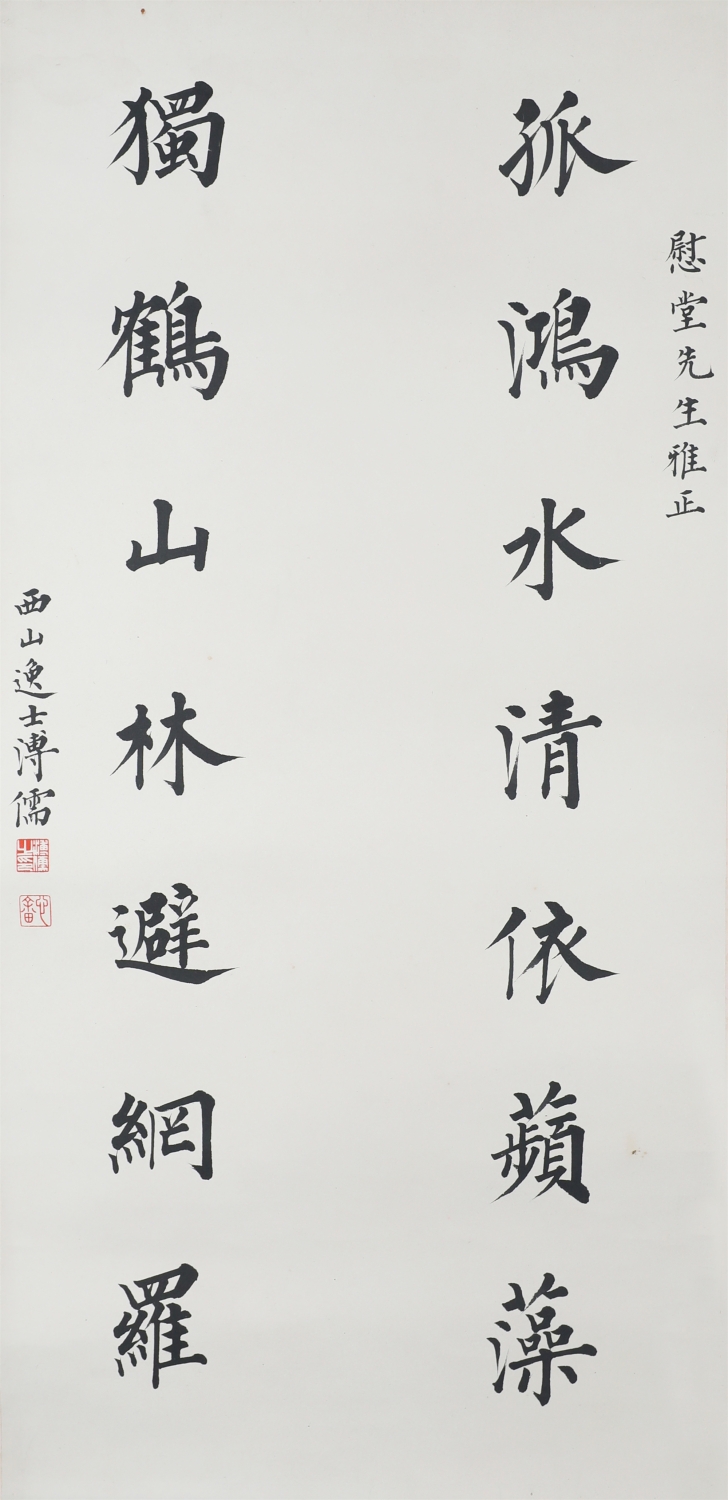 慰堂先生雅正
孤鴻水清依蘋藻
獨鶴山林避網羅
西山逸士溥儒
溥儒之印
心畬